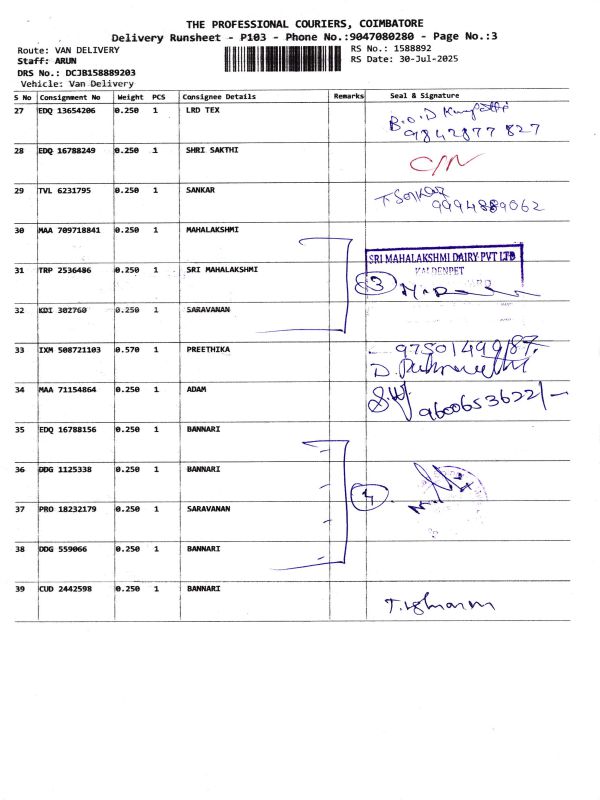 THE PROFESSIONAL COURIERS, COIMBATORE
Delivery Runsheet - P103 - Phone No.:9047080280 - Page No.:3
Route: VAN DELIVERY
RS No.: 1588892
Staff: ARUN
RS Date: 30-Jul-2025
DRS No.: DCJB158889203
Vehicle: Van Delivery
S No Consignment No Weight PCS Consignee Details Remarks Seal & Signature
27 EDQ 13654206 0.250 1 LRD TEX B.O.D
9842877 827
28 EDQ 16788249 0.250 1 SHRI SAKTHI C/N
29 TVL 6231795 0.250 1 SANKAR T
9994889062
30 MAA 709718841 0.250 1 MAHALAKSHMI
SRI MAHALAKSHMI DAIRY PVT LTD
31 TRP 2536486 0.250 1 SRI MAHALAKSHMI
3
32 KDI 302760 0.250 1 SARAVANAN
33 IXM 508721103 0.570 1 PREETHIKA 9750149987.
D.
34 MAA 71154864 0.250 1 ADAM
9600653622/-
35 EDQ 16788156 0.250 1 BANNARI
36 DDG 1125338 0.250 1 BANNARI
4
37 PRO 18232179 0.250 1 SARAVANAN
38 DDG 559066 0.250 1 BANNARI
39 CUD 2442598 0.250 1 BANNARI